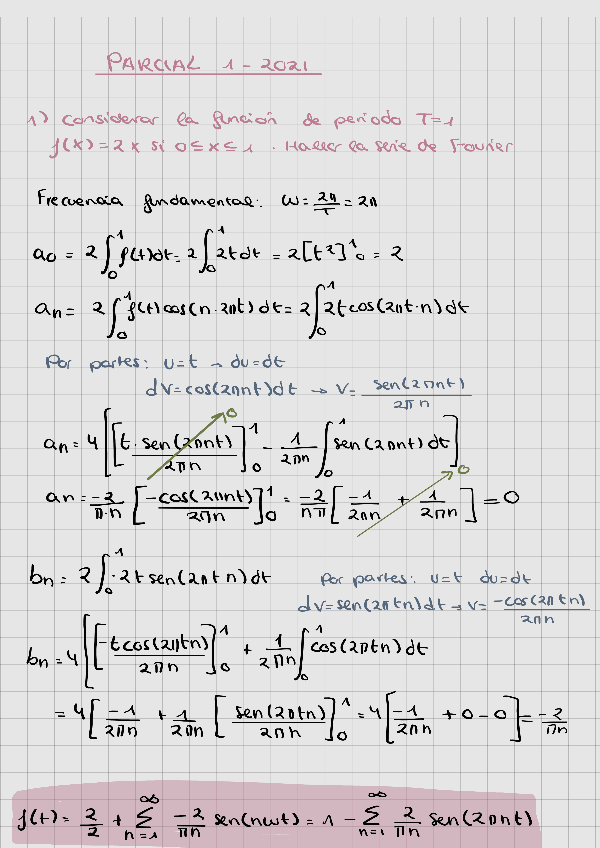 PARCIAL 1 - 2021
1) Considerar la función de periodo T=1
f(x)=2x si 0≤x≤1 . Hallar la serie de Fourier
Frecuencia fundamental: ω=2π/T=2π
a0 = 2∫₀¹ f(t)dt = 2∫₀¹ 2t dt = 2[t²]¹₀ = 2
an = 2∫₀¹ f(t)cos(n·2πt)dt = 2∫₀¹ 2t cos(2πt·n)dt
Por partes: u=t → du=dt
dv=cos(2πnt)dt → v= sen(2πnt)/2πn
an = 4[[t·sen(2πnt)/2πn]¹₀ - 1/2πn ∫₀¹ sen(2πnt)dt] 0
an = -2/π·n [-cos(2πnt)/2πn]¹₀ = -2/nπ [-1/2πn + 1/2πn] = 0 0
bn = 2∫₀¹·2t sen(2πtn)dt Por partes: u=t du=dt
dv=sen(2πtn)dt → v= -cos(2πtn)/2πn
bn = 4[[-tcos(2πtn)/2πn]¹₀ + 1/2πn ∫₀¹ cos(2πtn)dt
= 4[-1/2πn + 1/2πn [sen(2πtn)/2πn]¹₀ = 4[-1/2πn + 0 - 0] = -2/πn
f(t) = 2/2 + ∑_{n=1}^{∞} -2/πn sen(nωt) = 1 - ∑_{n=1}^{∞} 2/πn sen(2πnt)